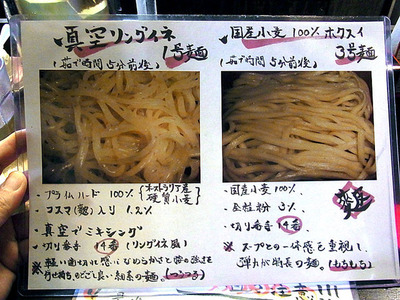 真空リングイネ
1号麺
(茹で時間 5分前後)
・プライムハード 100% {オーストラリア産 硬質小麦}
・コスマ(鶏)入り 1.2%
・真空でミキシング
・切り番手 14番 (リングイネ風)
※軽い歯切れに感じなめらかさと
細系の麺。(つるつる)
国産小麦 100% ホクスイ
3号麺
(茹で時間 5分前後)
・国産小麦 100%
・全粒粉 3%
・切り番手 14番
※スープとの一体感を重視し、
弾力が特長の麺。(もちもち)